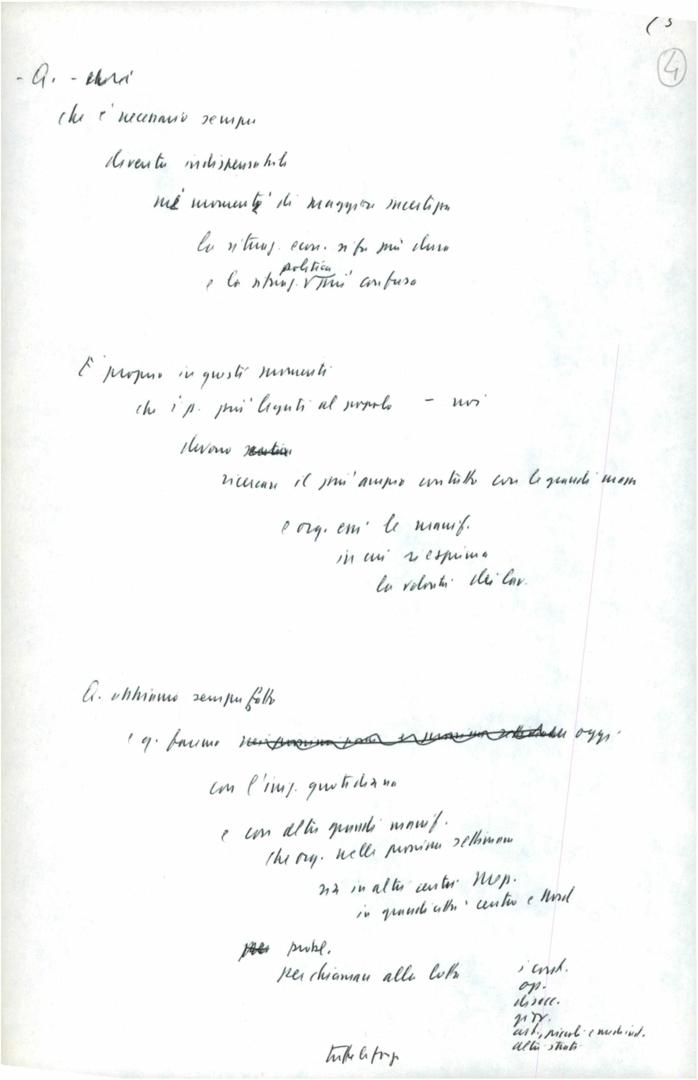 (5
4
- Q. -
che è necessario sempre
diventa indispensabile
nei momenti di maggiore incertezza
la situaz. econ. si fa più dura
politica
e la situaz. più confusa
È proprio in questi momenti
che i p. più legati al popolo - noi
devono
ricercare il più ampio contatto con le grandi masse
e org. essi le manif.
in cui si esprima
la volontà dei lav.
Q. abbiamo sempre fatto
e q. faremo oggi
con l'imp. quotidiano
e con altre grandi manif.
che org. nelle prossime settimane
sia in altri centri Mep.
in grandi città centro e Nord
probl.
per chiamare alla lotta
i cont.
op.
disocc.
giov.
art., piccoli e med ind.
altri strati
tutte le forze